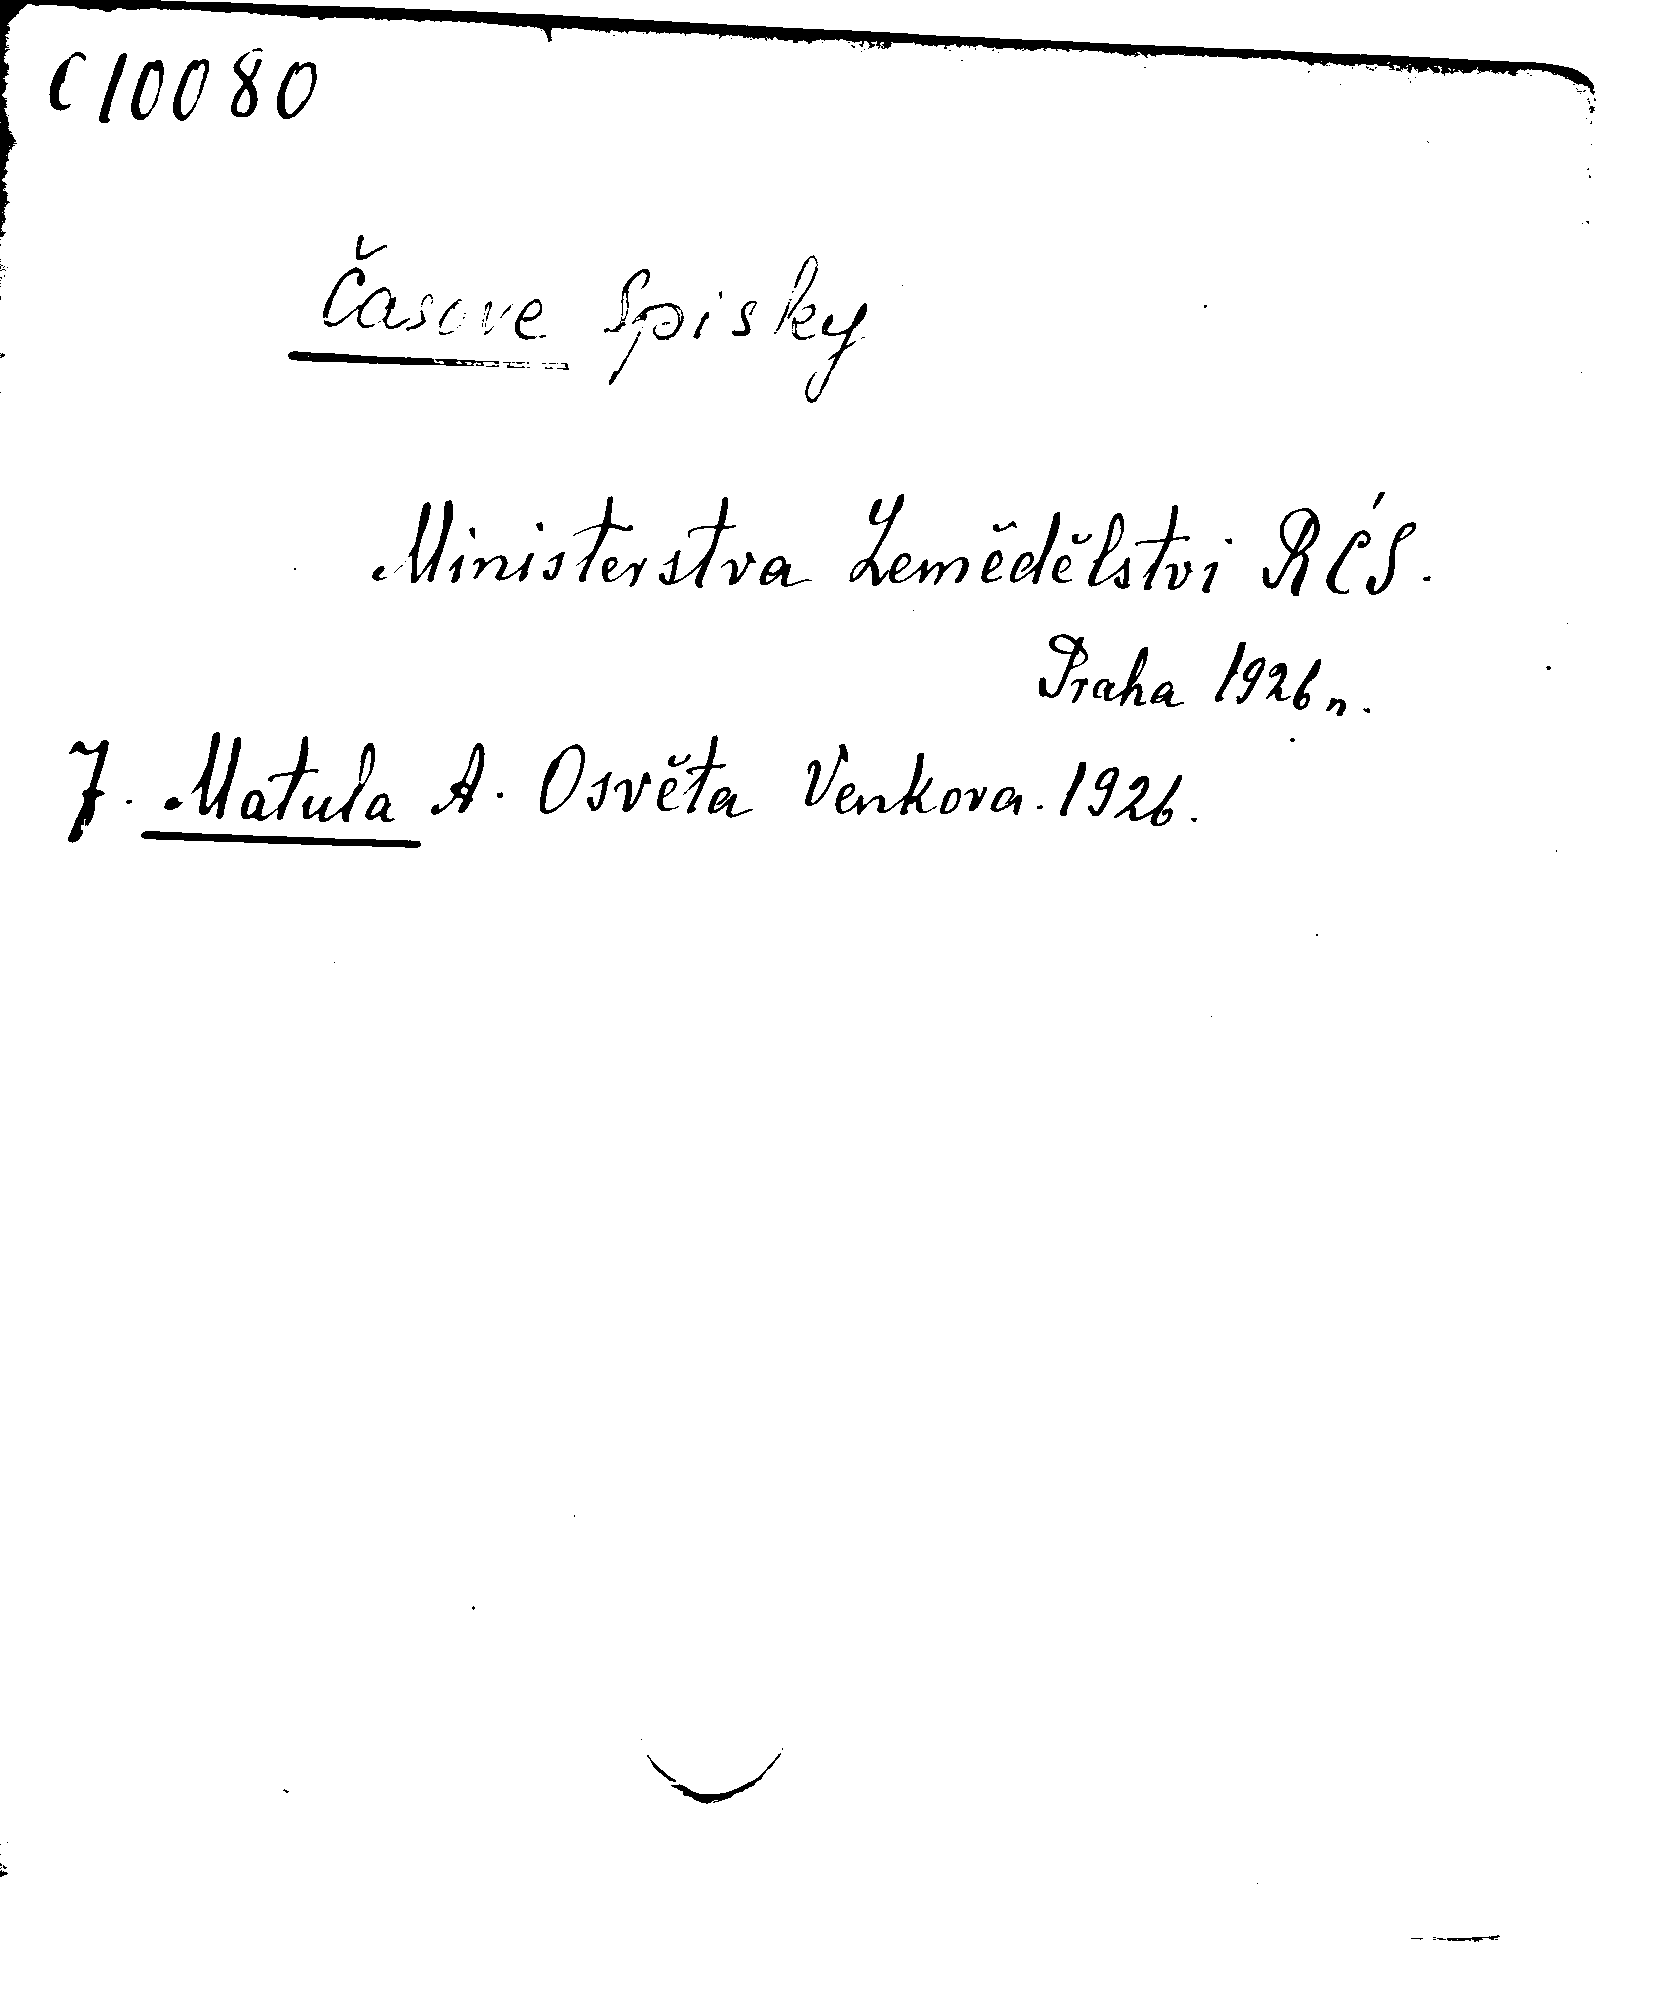 C10080
Časove Spisky
Ministerstva Zemědělstvi RČS.
Praha 1926 n.
7. Matula A. Osvěta Venkova. 1926.